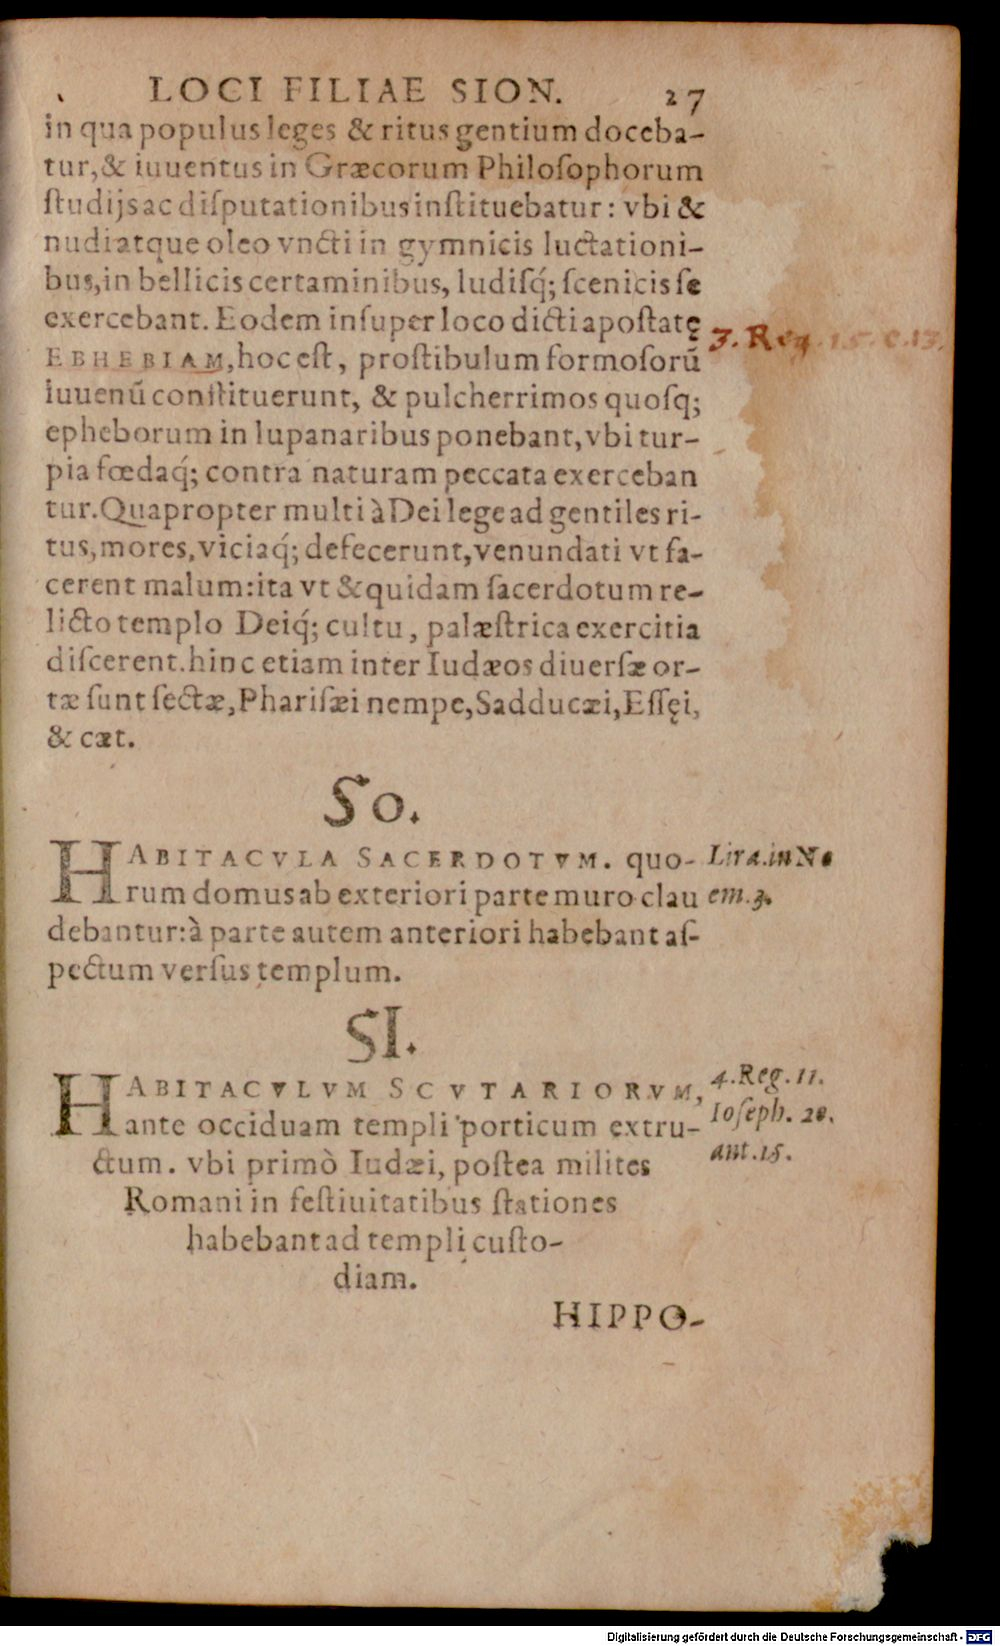 LOCI FILIAE SION. 27
in qua populus leges & ritus gentium doceba-
tur, & iuuentus in Græcorum Philoſophorum
ſtudijs ac diſputationibus inſtituebatur: vbi &
nudi atque oleo vncti in gymnicis luctationi-
bus, in bellicis certaminibus, ludiſq́; ſcenicis ſe
exercebant. Eodem inſuper loco dicti apoſtatę
EBHEBIAM, hoc eſt, proſtibulum formoſorũ
iuuenũ conſtituerunt, & pulcherrimos quoſq;
epheborum in lupanaribus ponebant, vbi tur-
pia fœdaq́; contra naturam peccata exerceban
tur. Quapropter multi à Dei lege ad gentiles ri-
tus, mores, viciaq́; defecerunt, venundati vt fa-
cerent malum: ita vt & quidam ſacerdotum re-
licto templo Deiq́; cultu, palæſtrica exercitia
diſcerent. hinc etiam inter Iudæos diuerſæ or-
tæ ſunt ſectæ, Phariſæi nempe, Sadducæi, Eſſęi,
& cæt.
3. Reg. 15. c. 13.
50.
HABITACVLA SACERDOTVM. quo-
rum domus ab exteriori parte muro clau
debantur: à parte autem anteriori habebant aſ-
pectum verſus templum.
Lira. in Ne
em. 3.
51.
HABITACVLVM SCVTARIORVM,
ante occiduam templi porticum extru-
ctum. vbi primò Iudæi, poſtea milites
Romani in feſtiuitatibus ſtationes
habebant ad templi cuſto-
diam.
4. Reg. 11.
Ioſeph. 20.
ant. 15.
HIPPO-
Digitalisierung gefördert durch die Deutsche Forschungsgemeinschaft - DFG